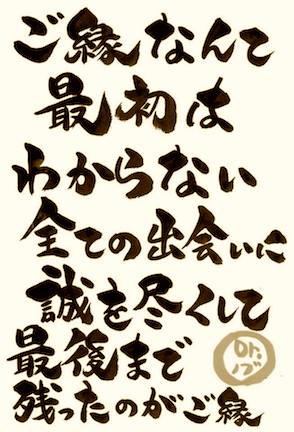 ご縁なんて
最初は
わからない
全ての出会いに
誠を尽くして
最後まで
残ったのがご縁
Dr.
ノブ